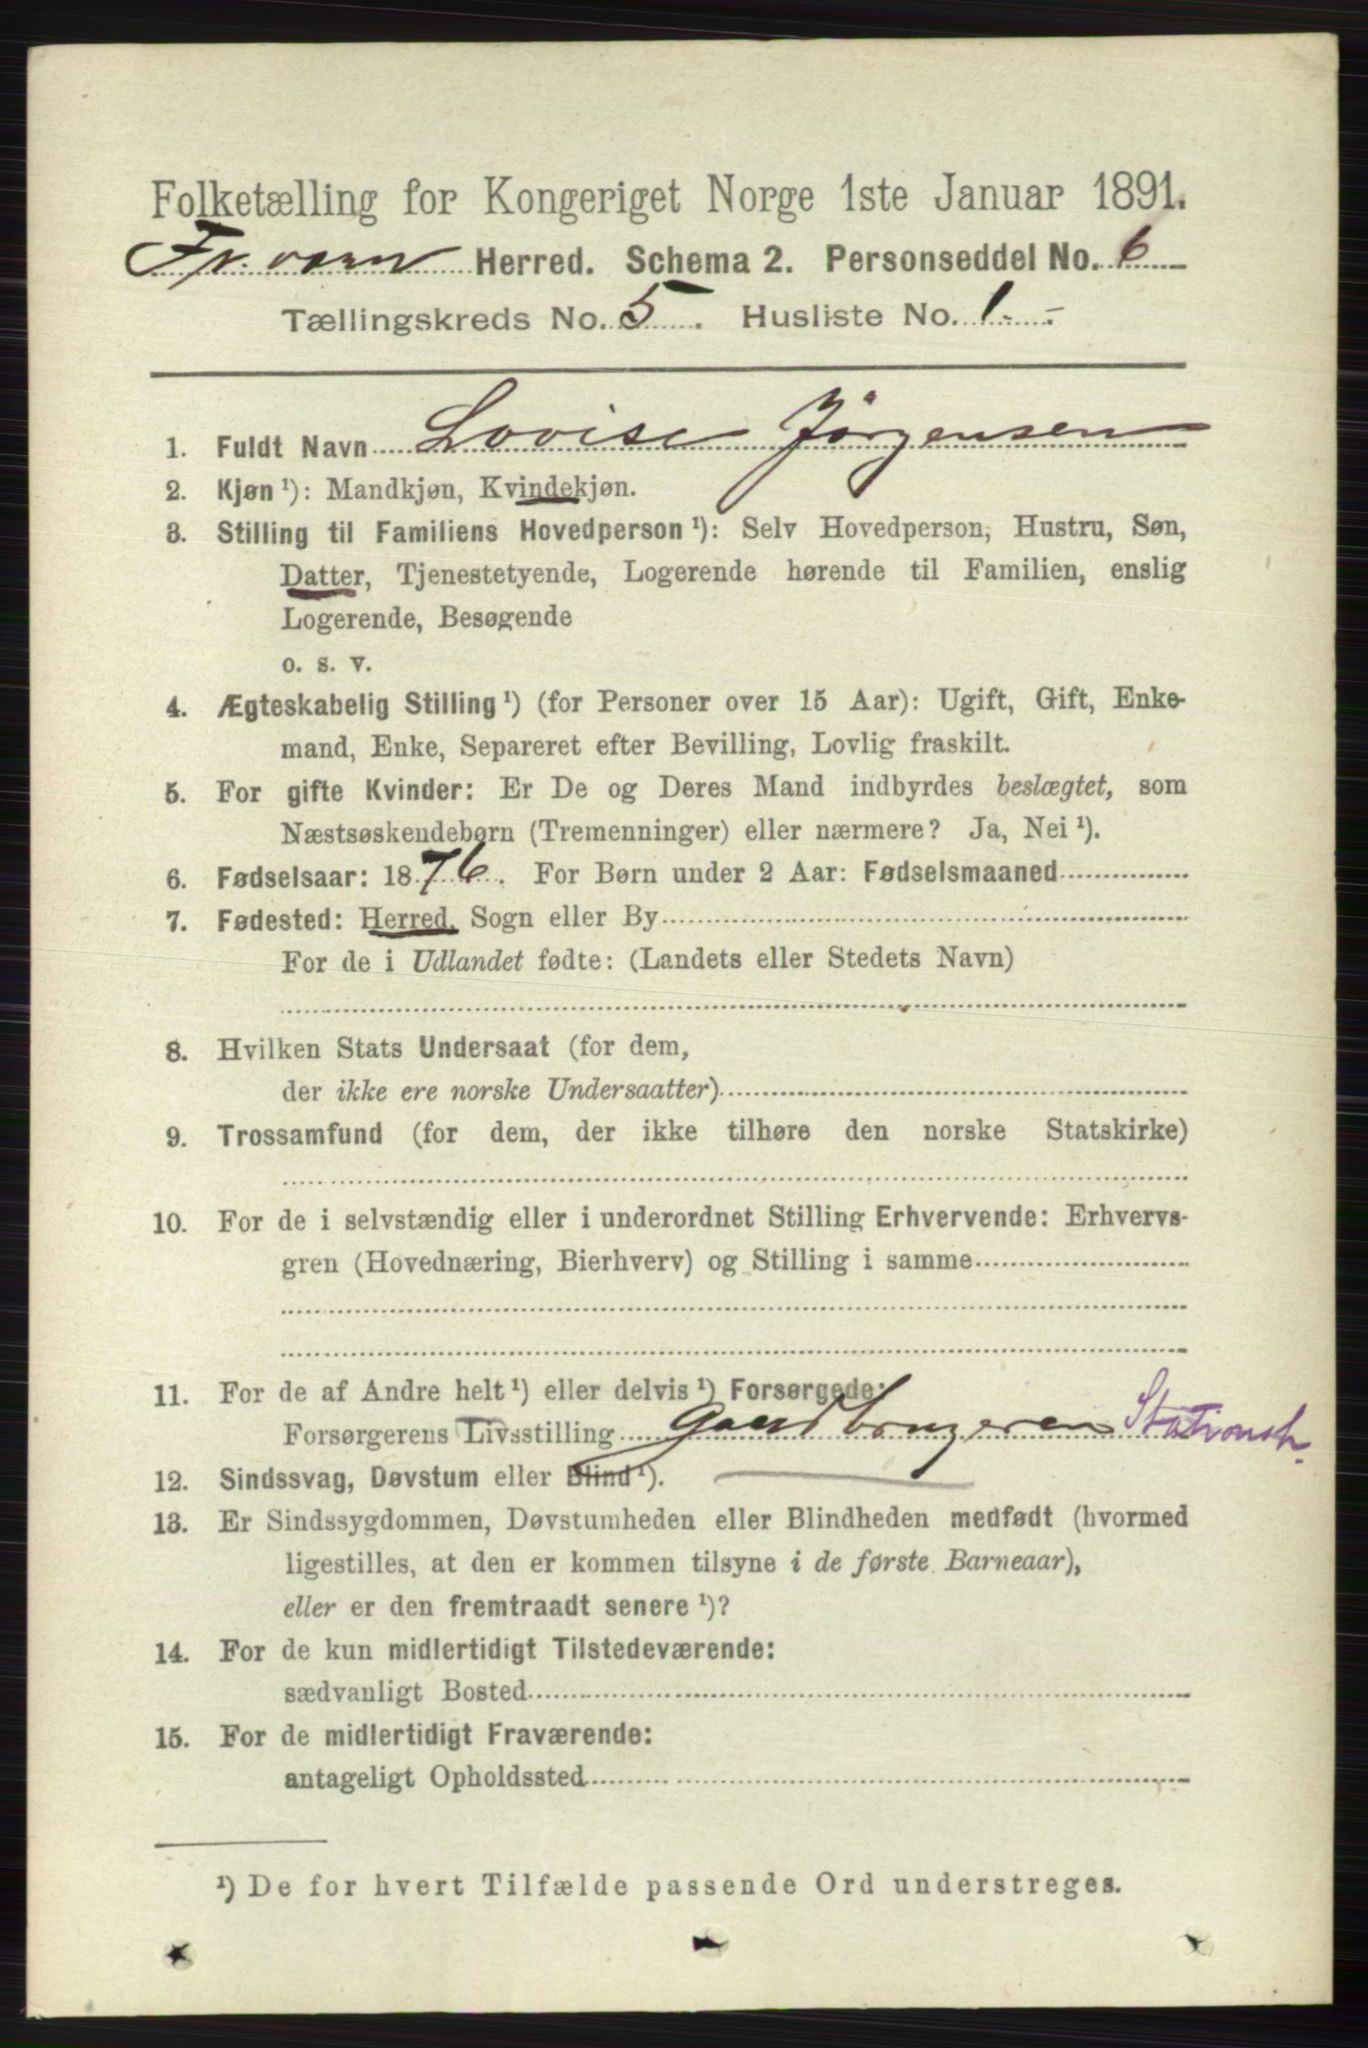 Folketælling for Kongeriget Norge 1ste Januar 1891.
Fr.værn Herred. Schema 2. Personseddel No. 6
Tællingskreds No. 5. Husliste No. 1.-
1. Fuldt Navn Lovise Jørgensen
2. Kjøn ¹): Mandkjøn, Kvindekjøn.
3. Stilling til Familiens Hovedperson ¹): Selv Hovedperson, Hustru, Søn,
Datter, Tjenestetyende, Logerende hørende til Familien, enslig
Logerende, Besøgende
o. s. v.
4. Ægteskabelig Stilling ¹) (for Personer over 15 Aar): Ugift, Gift, Enke-
mand, Enke, Separeret efter Bevilling, Lovlig fraskilt.
5. For gifte Kvinder: Er De og Deres Mand indbyrdes beslægtet, som
Næstsøskendebørn (Tremenninger) eller nærmere? Ja, Nei ¹).
6. Fødselsaar: 1876. For Børn under 2 Aar: Fødselsmaaned
7. Fødested: Herred, Sogn eller By
For de i Udlandet fødte: (Landets eller Stedets Navn)
8. Hvilken Stats Undersaat (for dem,
der ikke ere norske Undersaatter)
9. Trossamfund (for dem, der ikke tilhøre den norske Statskirke)
10. For de i selvstændig eller i underordnet Stilling Erhvervende: Erhvervs-
gren (Hovednæring, Bierhverv) og Stilling i samme
11. For de af Andre helt ¹) eller delvis ¹) Forsørgede:
Forsørgerens Livsstilling Gaardbrugeren Stationsh.
12. Sindssvag, Døvstum eller Blind ¹).
13. Er Sindssygdommen, Døvstumheden eller Blindheden medfødt (hvormed
ligestilles, at den er kommen tilsyne i de første Barneaar),
eller er den fremtraadt senere ¹)?
14. For de kun midlertidigt Tilstedeværende:
sædvanligt Bosted
15. For de midlertidigt Fraværende:
antageligt Opholdssted
¹) De for hvert Tilfælde passende Ord understreges.